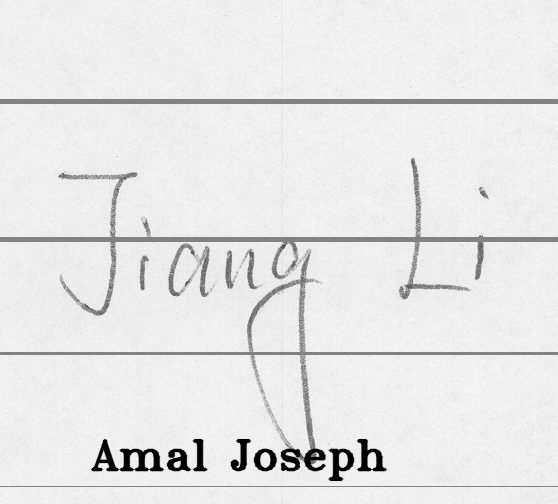 Jiang Li
Amal Joseph